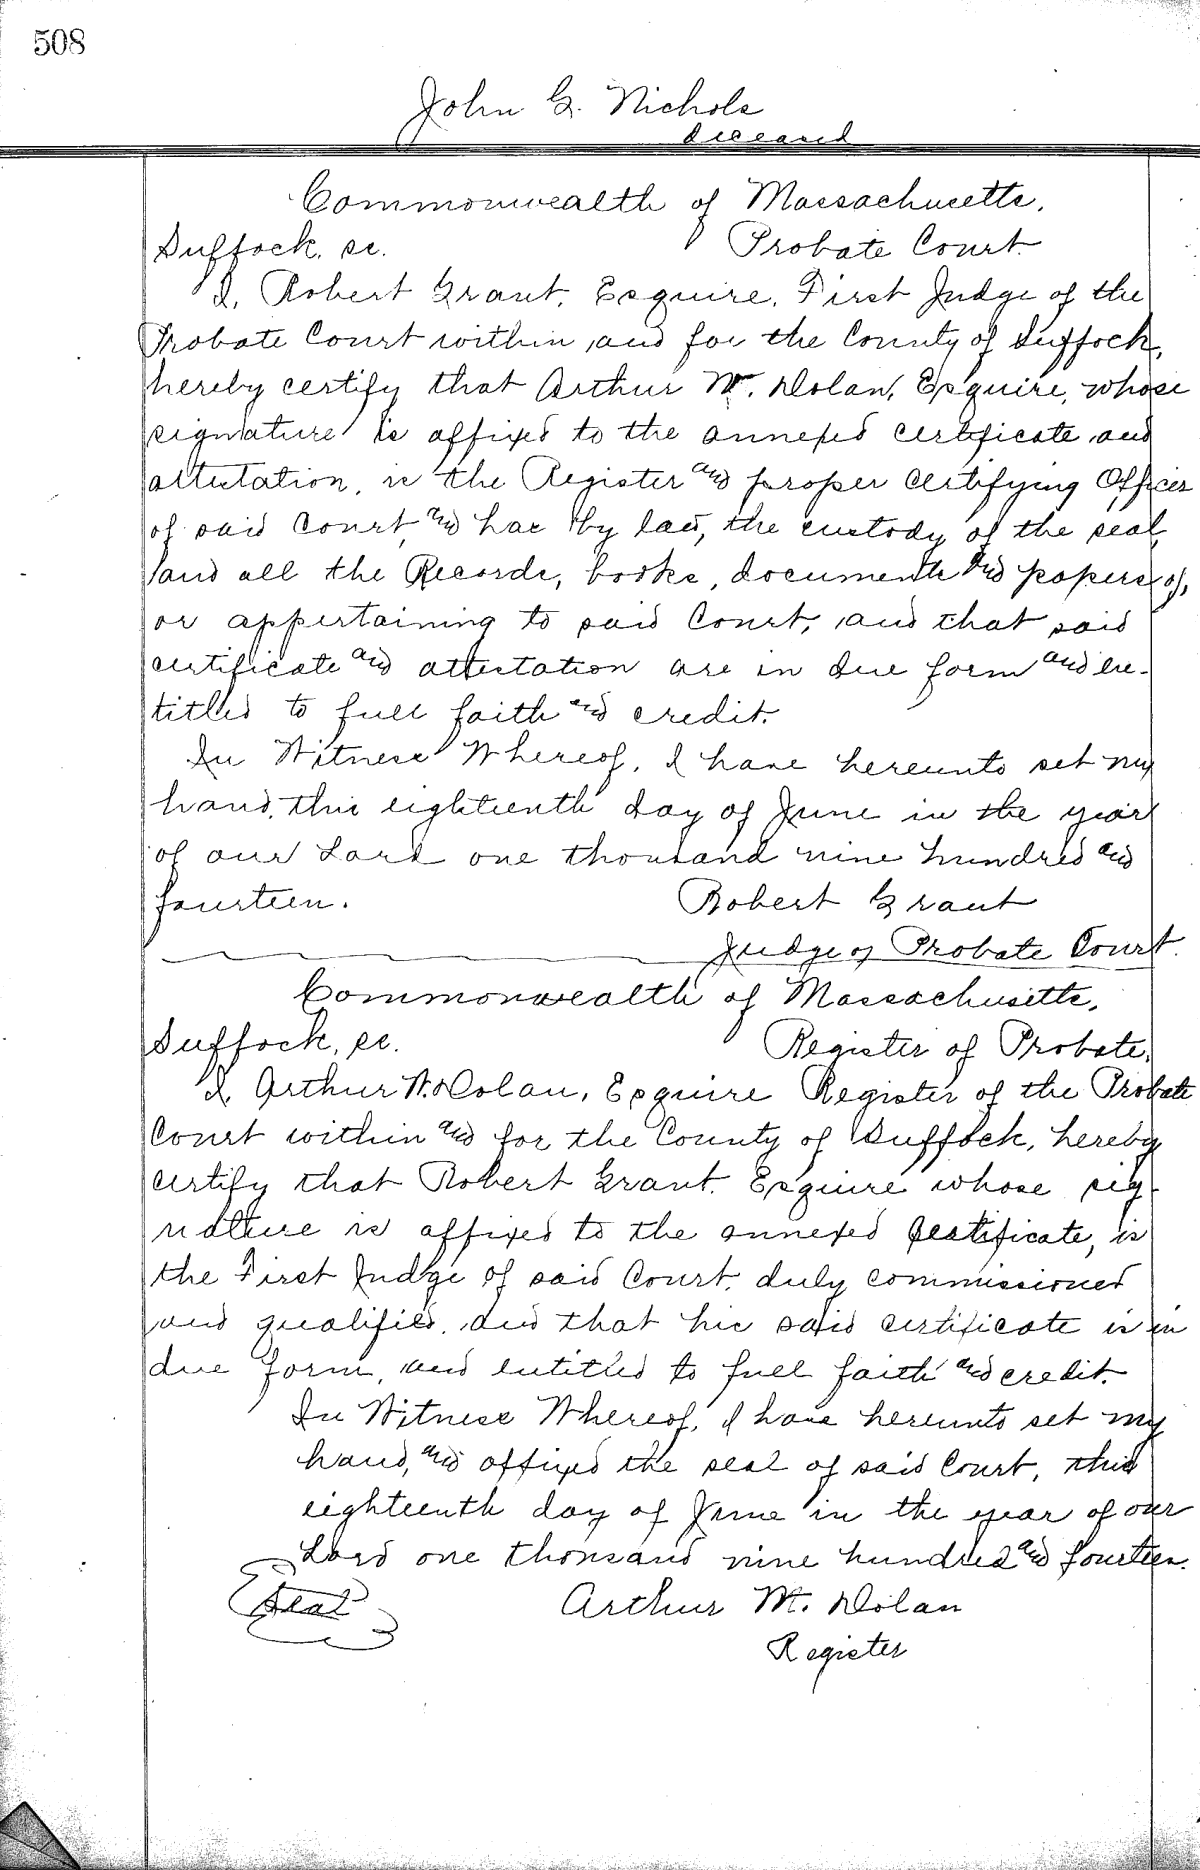 508
John G. Nichols
deceased
Commonwealth of Massachusetts.
Suffock. ss. Probate Court.
I, Robert Grant, Esquire, First Judge of the
Probate Court within and for the County of Suffock,
hereby certify that Arthur W. Dolan, Esquire, whose
signature is affixed to the annexed certificate and
attestation, is the Register and proper certifying Officer
of said Court, and has by law, the custody of the seal,
and all the Records, books, documents and papers of,
or appertaining to said Court, and that said
certificate and attestation are in due form and en-
titled to full faith and credit.
In Witness Whereof, I have hereunto set my
hand, this eighteenth day of June in the year
of our Lord one thousand nine hundred and
fourteen. Robert Grant
Judge of Probate Court.
Commonwealth of Massachusetts.
Suffock, ss. Register of Probate.
I, Arthur W. Dolan, Esquire Register of the Probate
Court within and for the County of Suffock, hereby
certify that Robert Grant. Esquire whose sig-
nature is affixed to the annexed Certificate, is
the First Judge of said Court, duly commissioned
and qualified, and that his said certificate is in
due form, and entitled to full faith and credit.
In Witness Whereof, I have hereunto set my
hand, and affixed the seal of said Court, this
eighteenth day of June in the year of our
Lord one thousand nine hundred and fourteen.
Seal Arthur M. Dolan
Register